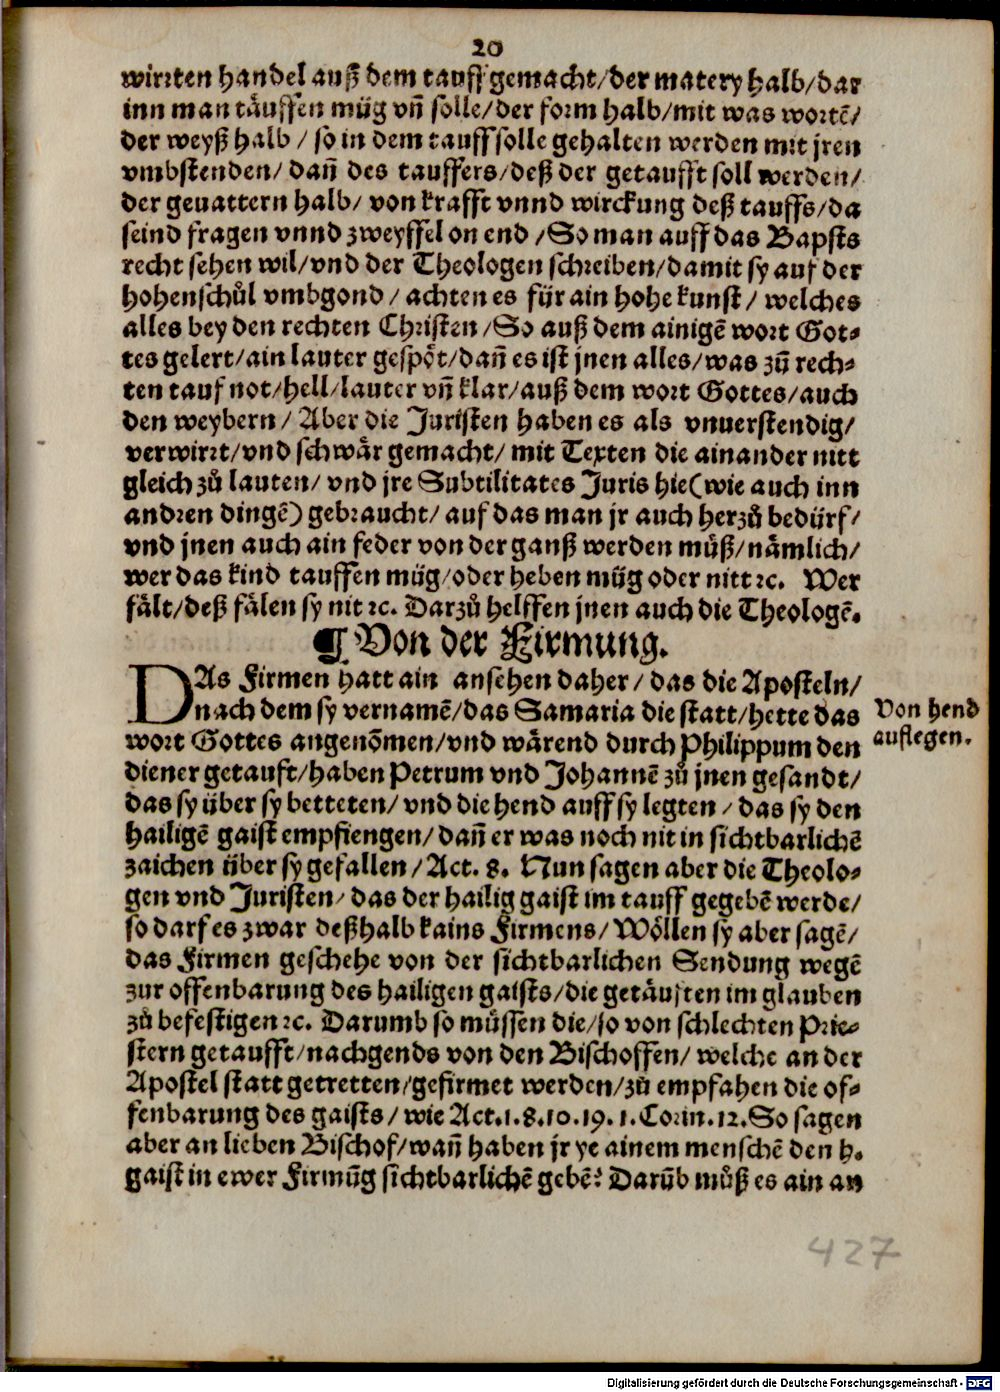 20
wirꝛten handel auß dem tauff gemacht/der matery halb/dar
inn man täuffen müg vñ solle/der form halb/mit was wortē/
der weyß halb / so in dem tauff solle gehalten werden mit jren
vmbstenden/ dañ des tauffers/deß der getaufft soll werden/
der geuattern halb/ von krafft vnnd wirckung deß tauffs/da
seind fragen vnnd zweyffel on end /So man auff das Bapsts
recht sehen wil/vnd der Theologen schreiben/damit sy auf der
hohenschůl vmbgond / achten es für ain hohe kunst/ welches
alles bey den rechten Christen /So auß dem ainigē wort Got-
tes gelert/ain lauter gespöt/dañ es ist jnen alles/was zů rech-
ten tauf not/hell/lauter vñ klar/auß dem wort Gottes/auch
den weybern/ Aber die Juristen haben es als vnuerstendig/
verwirꝛt/vnd schwär gemacht/ mit Texten die ainander nitt
gleich zů lauten/ vnd jre Subtilitates Juris hie(wie auch inn
andren dingē) gebraucht/ auf das man jr auch herzů bedürf/
vnd jnen auch ain feder von der ganß werden müß/nämlich/
wer das kind tauffen müg/oder heben müg oder nitt ꝛc. Wer
fält/deß fälen sy nit ꝛc. Darzů helffen jnen auch die Theologē.
¶ Von der Firmung.
DAs Firmen hatt ain ansehen daher/ das die Aposteln/
nach dem sy vernamē/das Samaria die statt/hette das
wort Gottes angenōmen/vnd wärend durch Philippum den
diener getauft/haben Petrum vnd Johannē zů jnen gesandt/
das sy über sy betteten/ vnd die hend auff sy legten / das sy den
hailigē gaist empfiengen/ dañ er was noch nit in sichtbarlichē
zaichen über sy gefallen/ Act. 8. Nun sagen aber die Theolo-
gen vnd Juristen/ das der hailig gaist im tauff gegebē werde/
so darf es zwar deßhalb kains Firmens/ Wöllen sy aber sagē/
das Firmen geschehe von der sichtbarlichen Sendung wegē
zur offenbarung des hailigen gaists/die getäuften im glauben
zů befestigen ꝛc. Darumb so müssen die/so von schlechten Prie-
stern getaufft/nachgends von den Bischoffen/ welche an der
Apostel statt getretten/gefirmet werden/zů empfahen die of-
fenbarung des gaists/ wie Act.1.8.10.19.1.Corin.12.So sagen
aber an lieben Bischof/wañ haben jr ye ainem menschē den h.
gaist in ewer Firmūg sichtbarlichē gebē? Darūb müß es ain an
Von hend
auflegen.
427
Digitalisierung gefördert durch die Deutsche Forschungsgemeinschaft - DFG